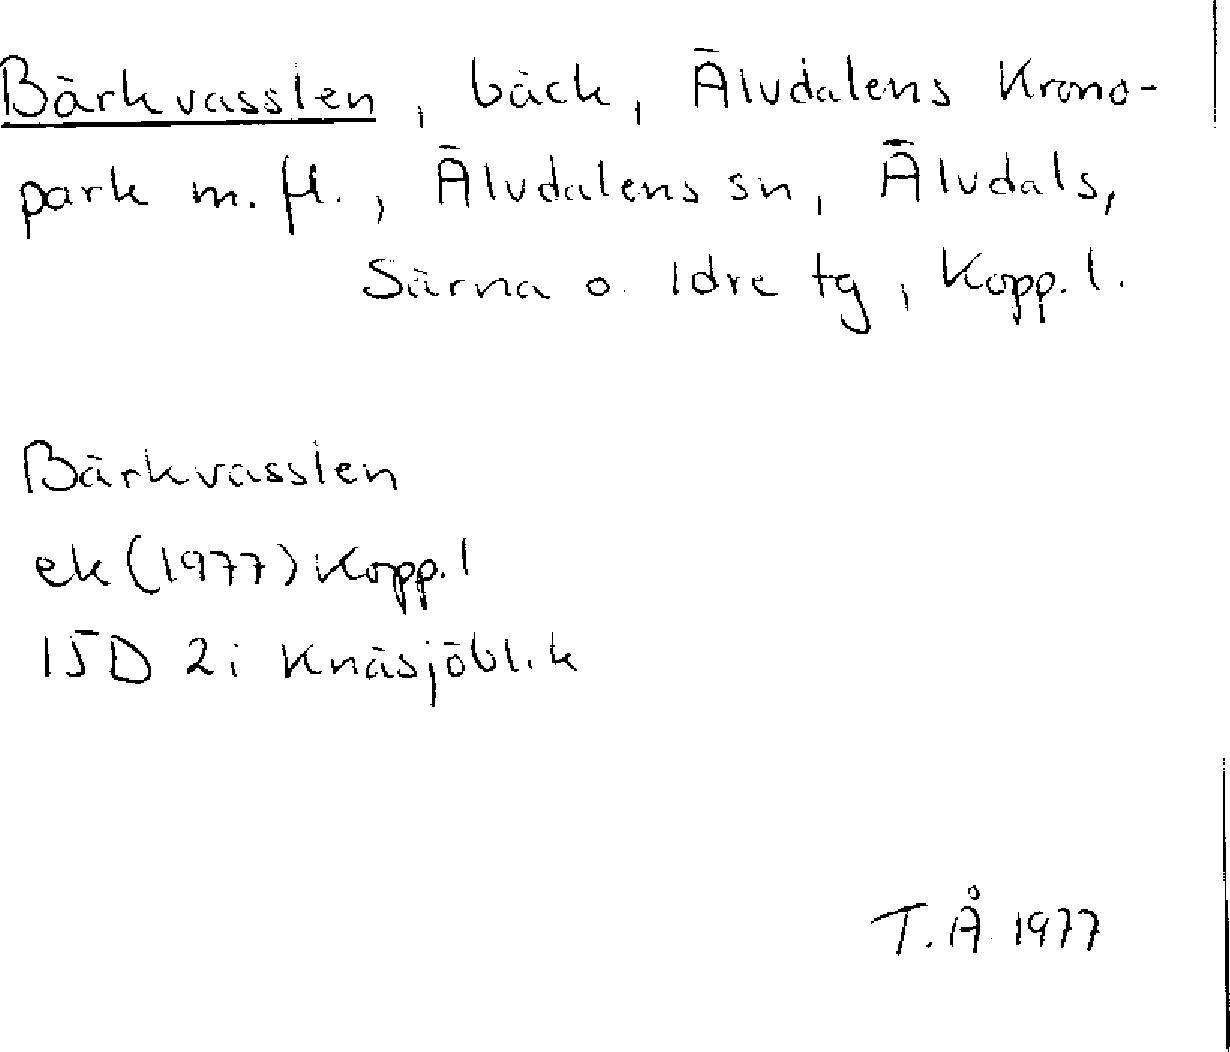 Bärkvasslen, bäck, Älvdalens Krono-
park m. fl., Älvdalens sn, Älvdals,
Särna o. Idre tg, Kopp. l.
Bärkvasslen
ek (1977) Kopp. l
15D 2i Knäsjöblik
T. Å 1977